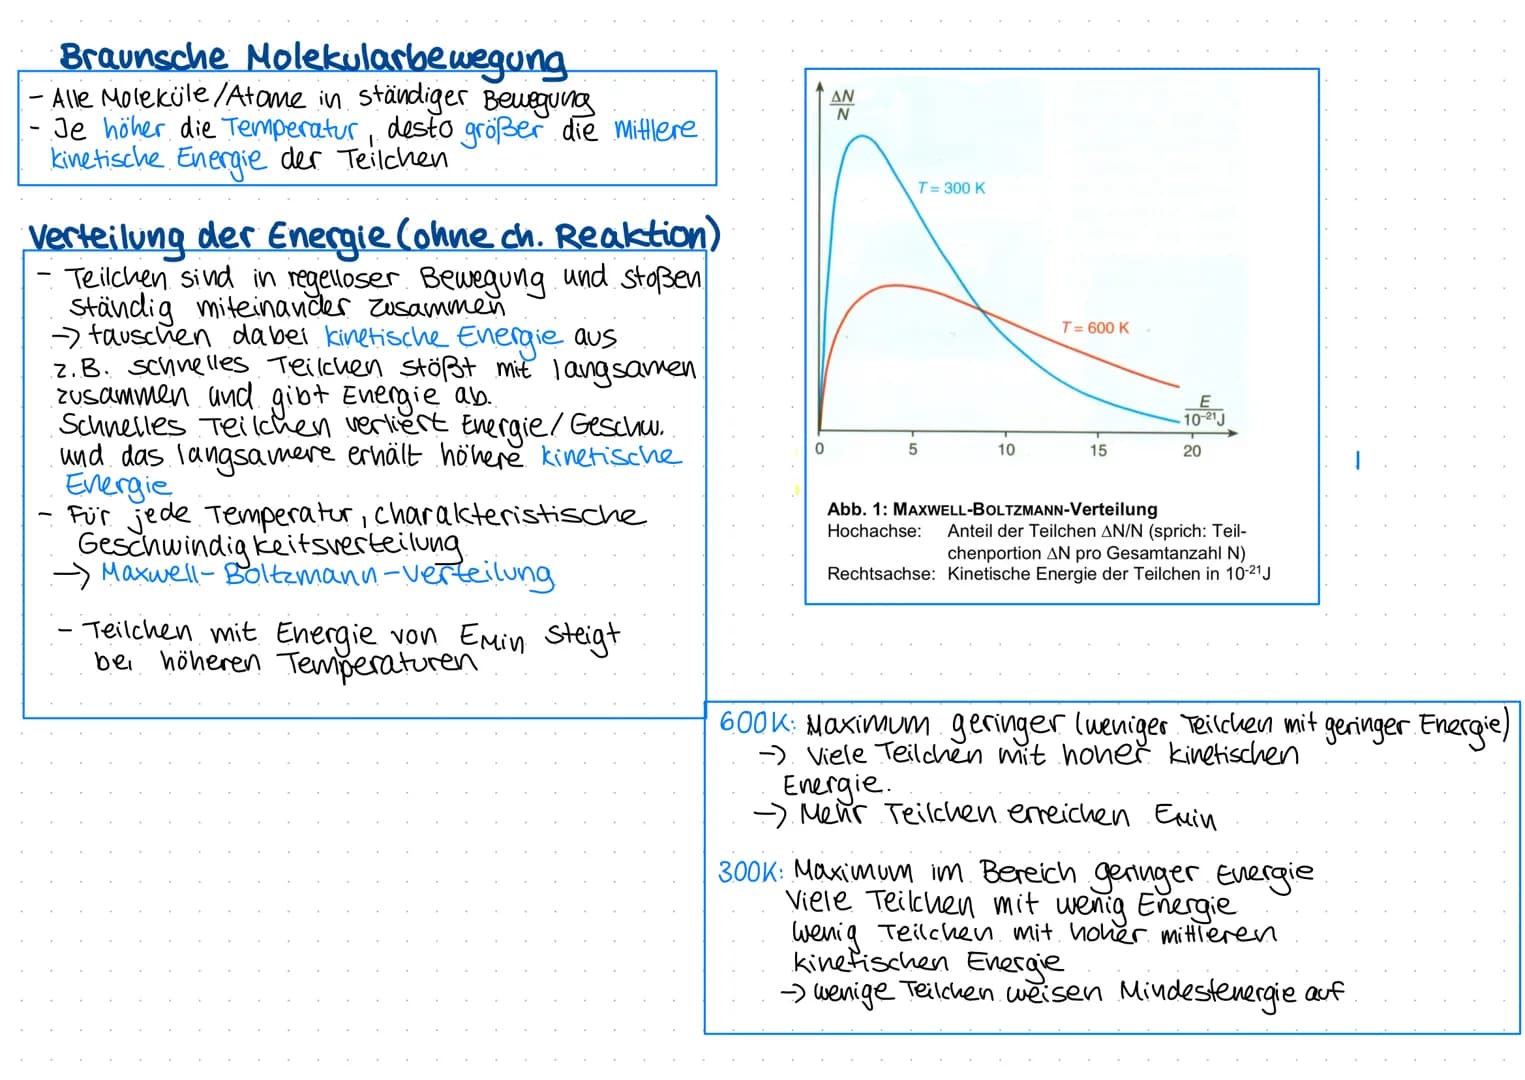 Braunsche Molekularbewegung
- Alle Moleküle/Atome in ständiger Bewegung
- Je höher die Temperatur, desto größer die Mittlere
kinetische Energie der Teilchen
Verteilung der Energie (ohne ch. Reaktion)
- Teilchen sind in regelloser Bewegung und stoßen
ständig miteinander zusammen
-> tauschen dabei kinetische Energie aus
z.B. schnelles Teilchen stößt mit langsamen
zusammen und gibt Energie ab.
Schnelles Teilchen verliert Energie/Geschw.
und das langsamere erhält höhere kinetische
Energie
- Für jede Temperatur, charakteristische
Geschwindigkeitsverteilung
-> Maxwell-Boltzmann-Verteilung
- Teilchen mit Energie von EMin steigt
bei höheren Temperaturen
ΔN
N
T = 300 K
T = 600 K
E
10-21J
0 5 10 15 20
Abb. 1: MAXWELL-BOLTZMANN-Verteilung
Hochachse: Anteil der Teilchen ΔN/N (sprich: Teil-
chenportion ΔN pro Gesamtanzahl N)
Rechtsachse: Kinetische Energie der Teilchen in 10-21J
600K: Maximum geringer (weniger Teilchen mit geringer Energie)
-> Viele Teilchen mit hoher kinetischen
Energie.
-> Mehr Teilchen erreichen EMin
300K: Maximum im Bereich geringer Energie
Viele Teilchen mit wenig Energie
Wenig Teilchen mit hoher mittleren
kinetischen Energie
-> wenige Teilchen weisen Mindestenergie auf